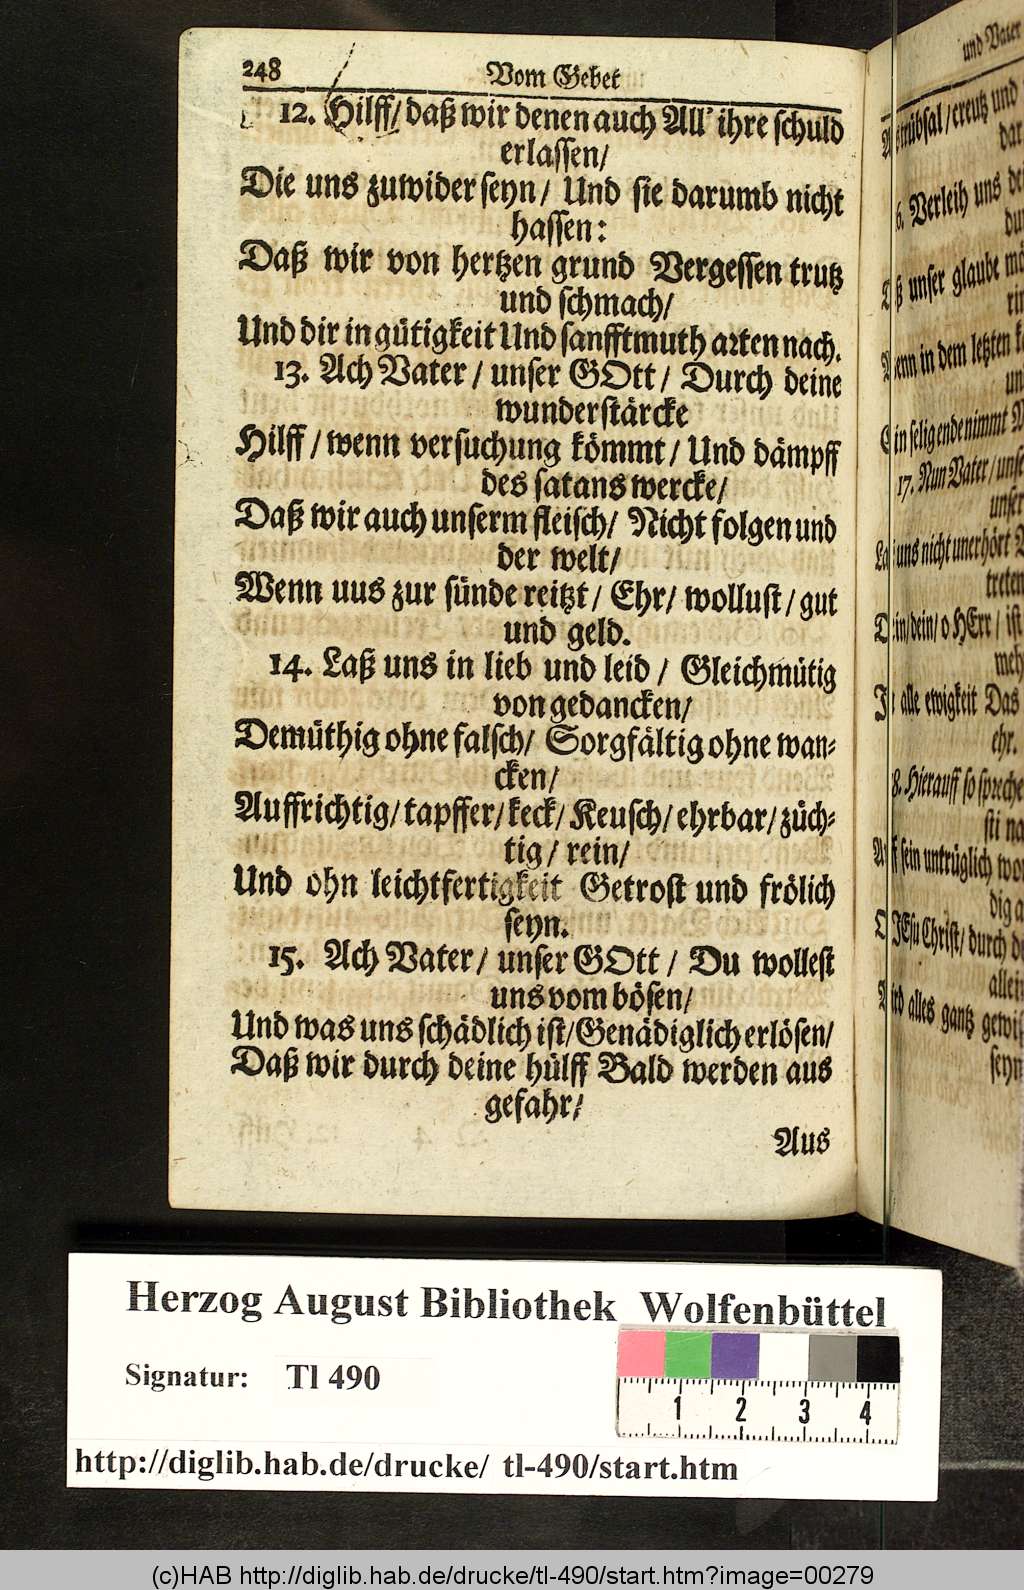 248 Vom Gebet
12. Hilff/ daß wir denen auch All' ihre schuld
erlassen/
Die uns zuwider seyn/ Und sie darumb nicht
hassen:
Daß wir von hertzen grund Vergessen trutz
und schmach/
Und dir in gütigkeit Und sanfftmuth arten nach.
13. Ach Vater / unser GOtt / Durch deine
wunderstärcke
Hilff / wenn versuchung kömmt / Und dämpff
des satans wercke/
Daß wir auch unserm fleisch/ Nicht folgen und
der welt/
Wenn uus zur sünde reitzt / Ehr/ wollust / gut
und geld.
14. Laß uns in lieb und leid / Gleichmütig
von gedancken/
Demüthig ohne falsch/ Sorgfältig ohne wan-
cken/
Auffrichtig/ tapffer/ keck/ Keusch/ ehrbar/ züch-
tig / rein/
Und ohn leichtfertigkeit Getrost und frölich
seyn.
15. Ach Vater/ unser GOtt / Du wollest
uns vom bösen/
Und was uns schädlich ist/ Genädiglich erlösen/
Daß wir durch deine hülff Bald werden aus
gefahr/
Aus
und Vater
trübsal / creutz und
6. Verleih uns
unser glaube
in dem letzten
selig ende nimmt
17. Nun Vater / unse
unser
uns nicht unerhört
treten
dein/ o HErr / ist
alle ewigkeit Das
ehr.
8. Hierauff so spreche
sein untrüglich
JEsu Christ/ durch
allein
alles gantz
seyn
Herzog August Bibliothek Wolfenbüttel
Signatur: Tl 490
1 2 3 4
http://diglib.hab.de/drucke/ tl-490/start.htm
(c)HAB http://diglib.hab.de/drucke/tl-490/start.htm?image=00279